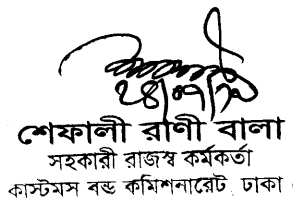 শেফালী রাণী বালা
সহকারী রাজস্ব কর্মকর্তা
কাস্টমস বন্ড কমিশনারেট ঢাকা